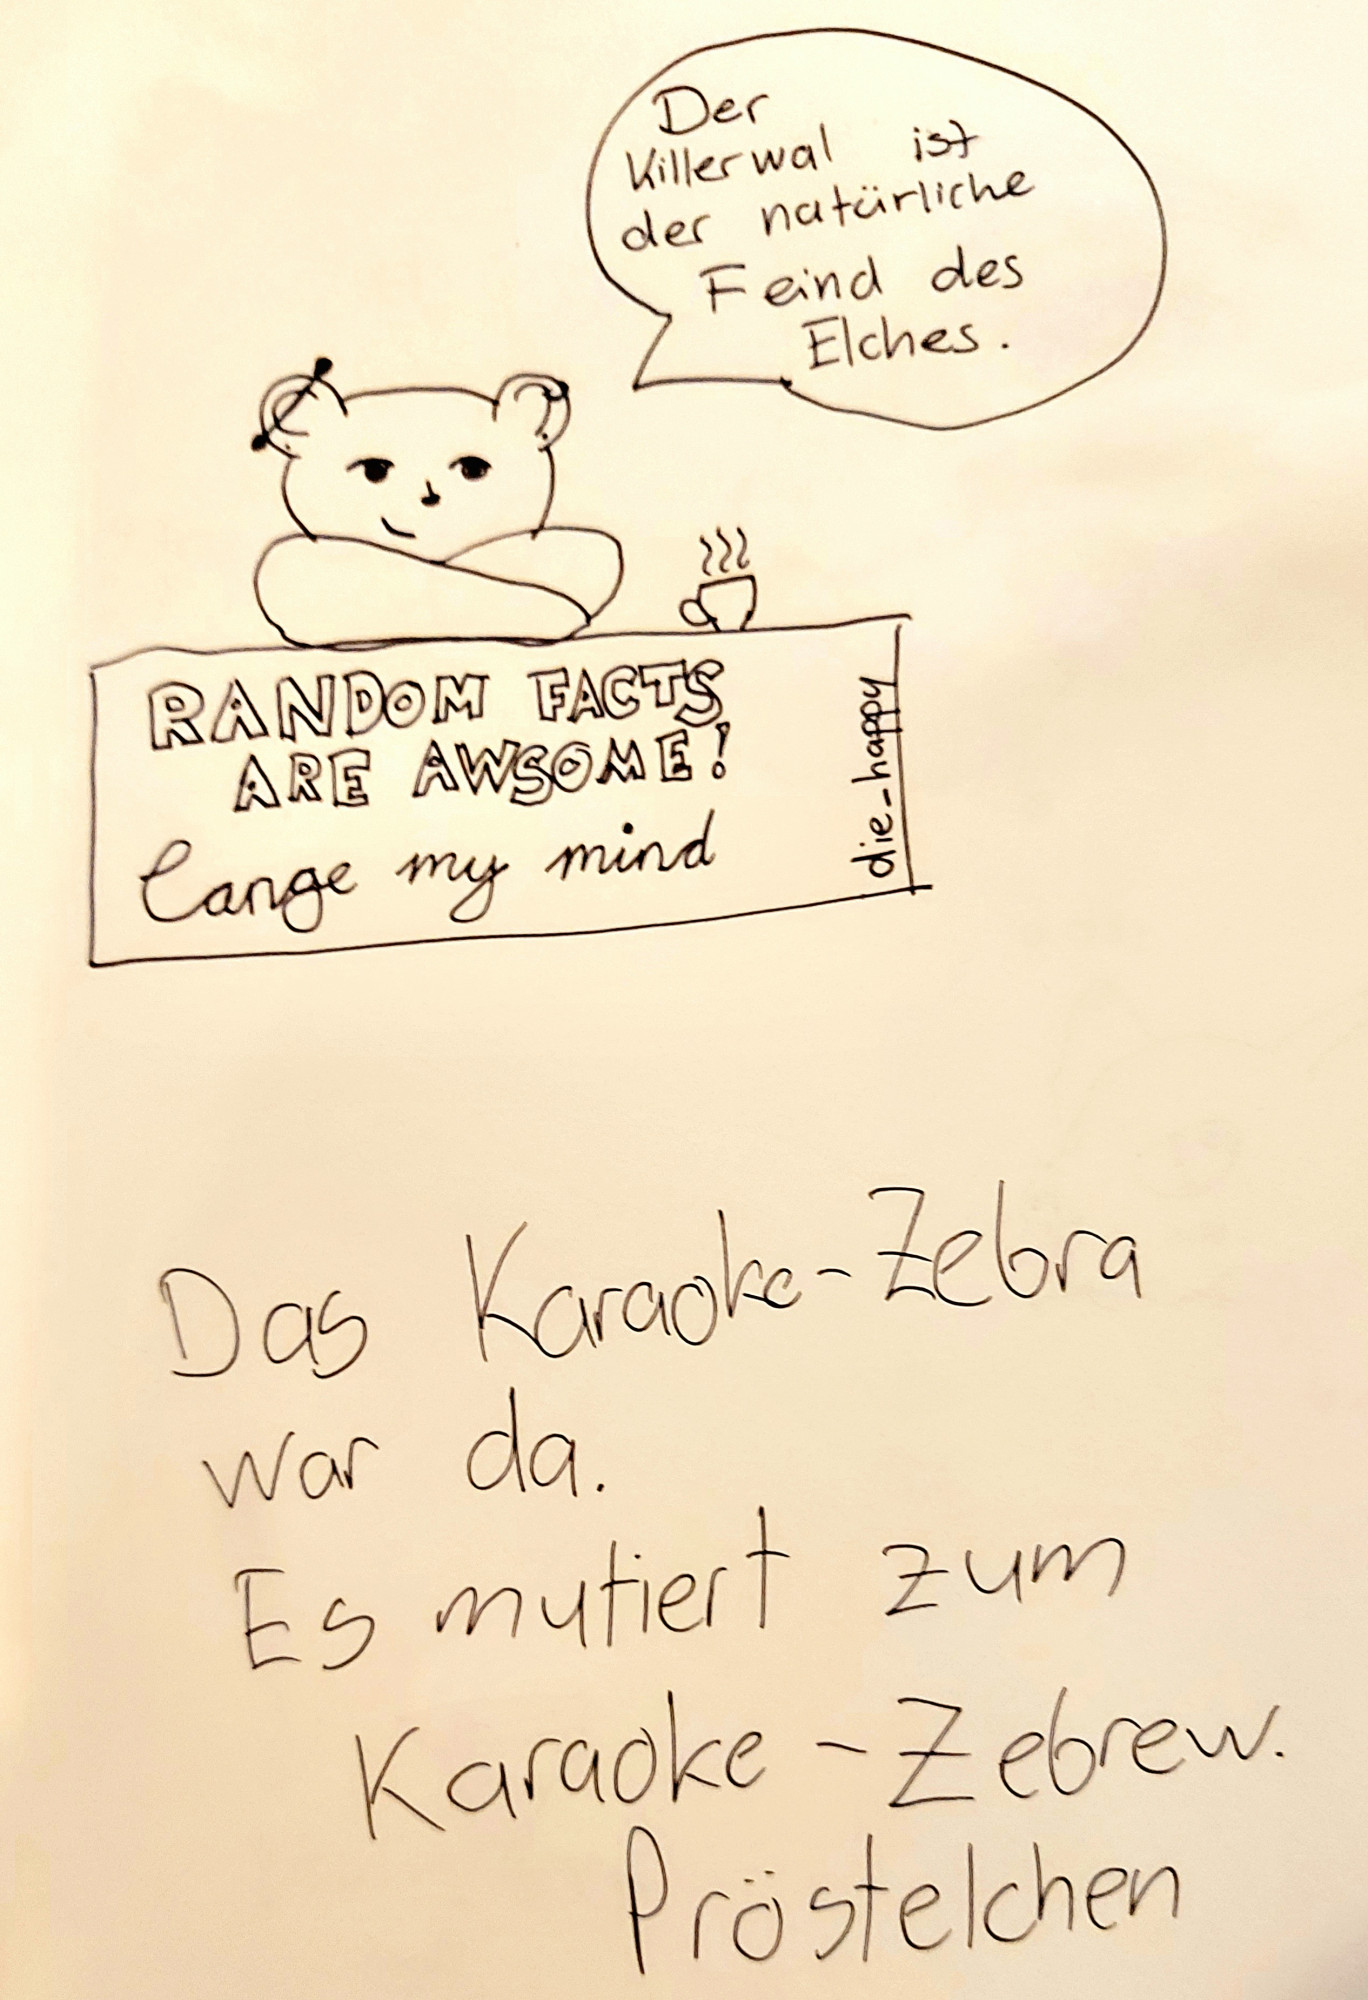 Der
Killerwal ist
der natürliche
Feind des
Elches.
RANDOM FACTS
ARE AWSOME!
Cange my mind
die_happy
Das Karaoke-Zebra
war da.
Es mutiert zum
Karaoke-Zebrew.
Pröstelchen